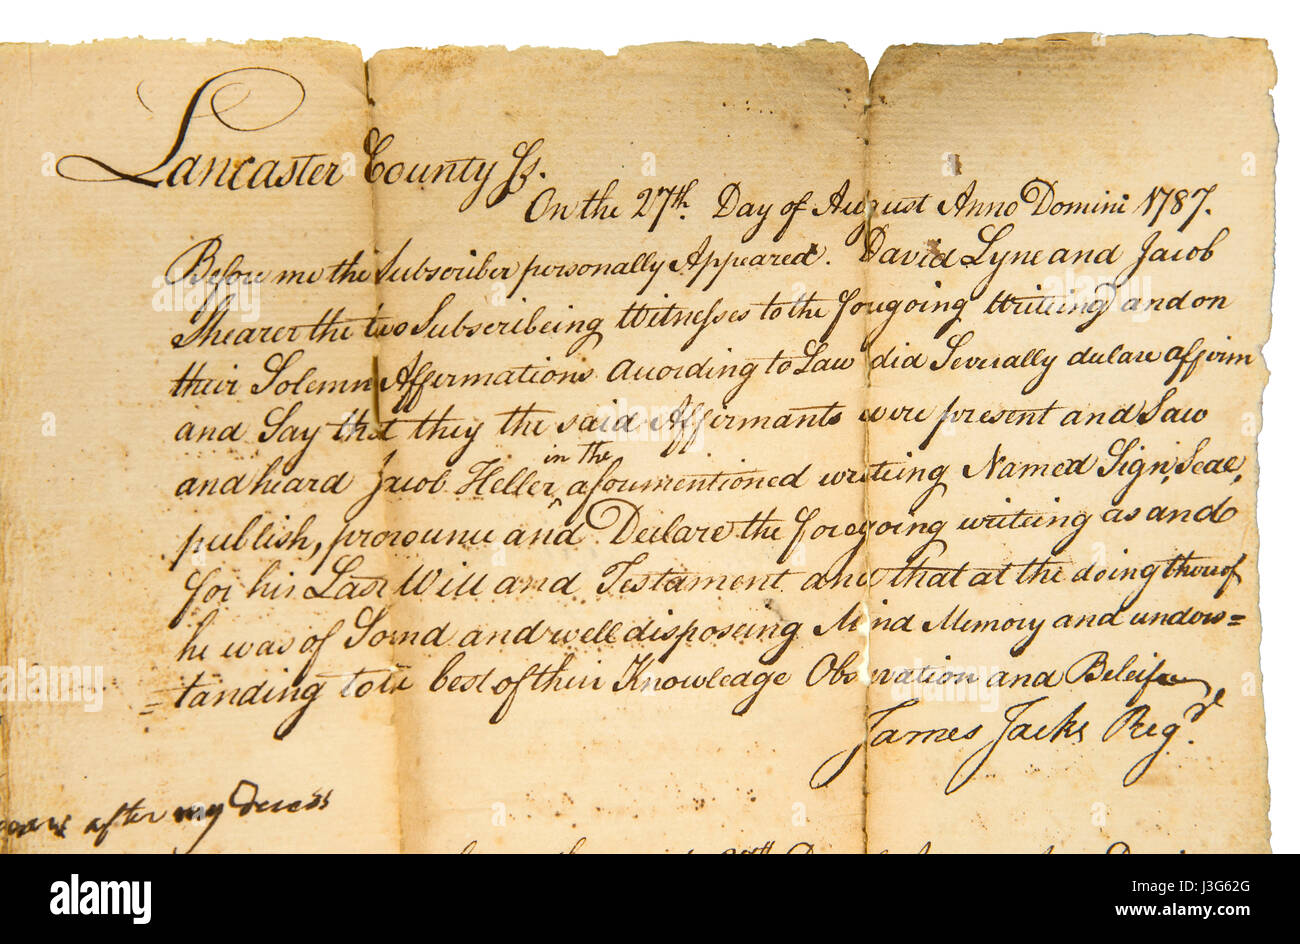 Lancaster County Ss.
On the 27th. Day of August Anno Domini 1787.
Before me the Subscriber personally Appeared. David Lyne and Jacob
Shearer the two Subscribeing Witnesses to the foregoing Writeing and on
their Solemn Affirmations Acording to Law did Severally declare affirm
and Say that they the said Affirmants were present and Saw
in the
and heard Jacob Heller ^ aforementioned writeing Named Sign, Seal,
publish, pronounce and Declare the foregoing writeing as and
for his Last Will and Testament and that at the doing thereof
he was of Sound and well disposeing Mind Memory and unders=
=tanding to the best of their Knowledge Observation and Beleif
James Jacks Regd.
after my Decess
alamy stock photo
alamy
Image ID: J3G62G
www.alamy.com